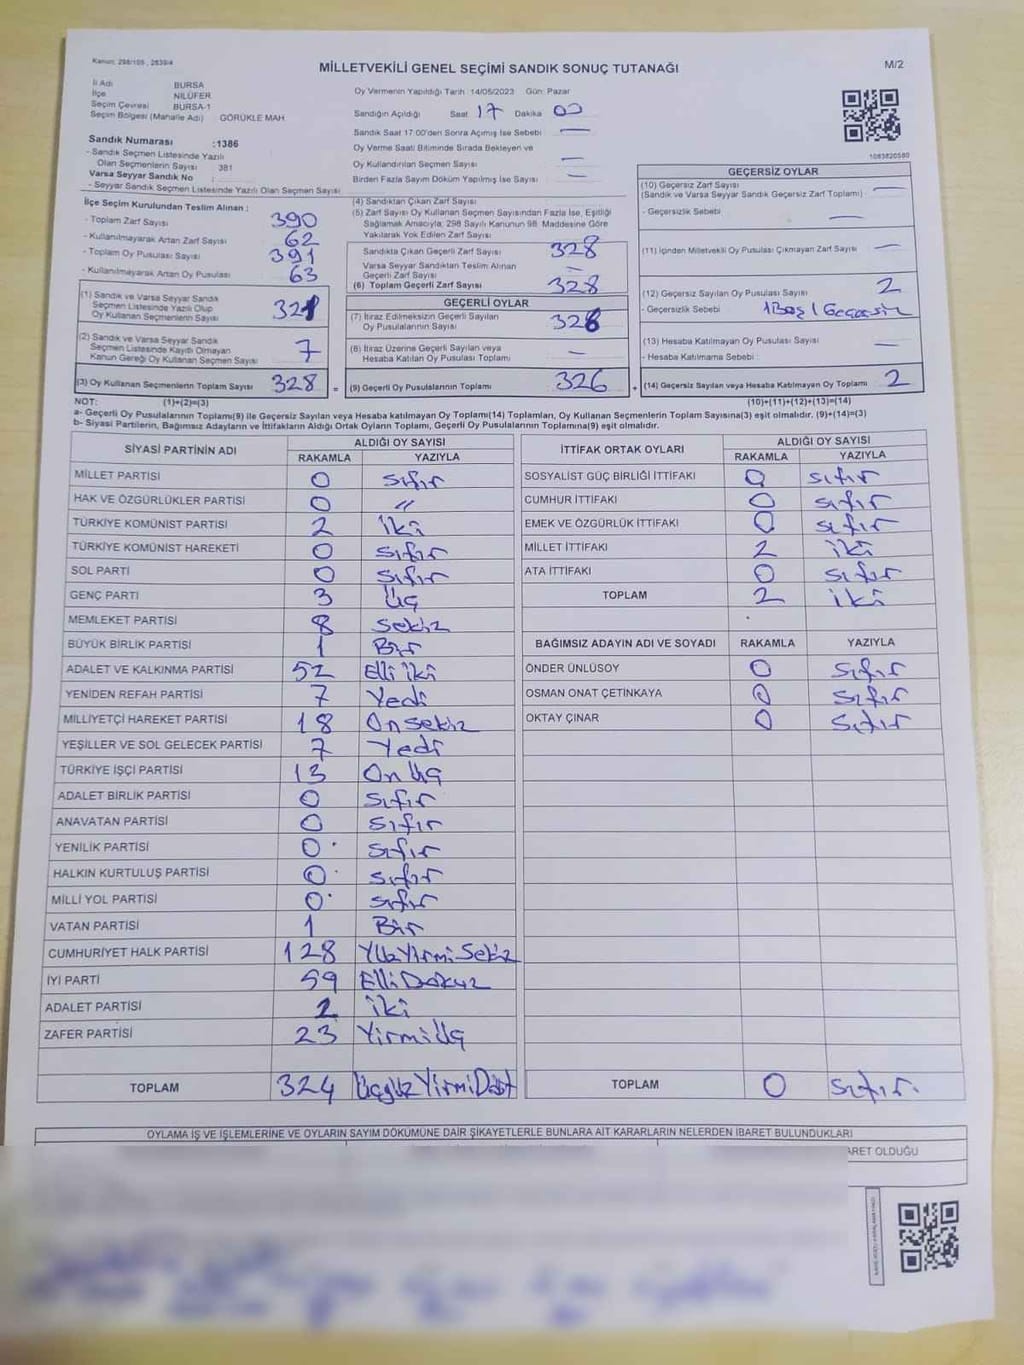 Kanun: 298/105, 2839/4
MİLLETVEKİLİ GENEL SEÇİMİ SANDIK SONUÇ TUTANAĞI
M/2
İl Adı BURSA
İlçe NİLÜFER
Seçim Çevresi BURSA-1
Seçim Bölgesi (Mahalle Adı) GÖRÜKLE MAH.
Sandık Numarası :1386
- Sandık Seçmen Listesinde Yazılı
Olan Seçmenlerin Sayısı 381
Varsa Seyyar Sandık No :
- Seyyar Sandık Seçmen Listesinde Yazılı Olan Seçmen Sayısı
Oy Vermenin Yapıldığı Tarih :14/05/2023 Gün: Pazar
Sandığın Açıldığı Saat 17 Dakika 00
Sandık Saat 17:00'den Sonra Açılmış İse Sebebi : —
Oy Verme Saati Bitiminde Sırada Bekleyen ve
Oy Kullandırılan Seçmen Sayısı —
Birden Fazla Sayım Döküm Yapılmış İse Sayısı —
1083820580
İlçe Seçim Kurulundan Teslim Alınan :
- Toplam Zarf Sayısı 390
- Kullanılmayarak Artan Zarf Sayısı 62
- Toplam Oy Pusulası Sayısı 391
- Kullanılmayarak Artan Oy Pusulası 63
(1) Sandık ve Varsa Seyyar Sandık
Seçmen Listesinde Yazılı Olup
Oy Kullanan Seçmenlerin Sayısı 321
(2) Sandık ve Varsa Seyyar Sandık
Seçmen Listesinde Kayıtlı Olmayan
Kanun Gereği Oy Kullanan Seçmen Sayısı 7
(3) Oy Kullanan Seçmenlerin Toplam Sayısı 328 =
(4) Sandıktan Çıkan Zarf Sayısı
(5) Zarf Sayısı Oy Kullanan Seçmen Sayısından Fazla İse, Eşitliği
Sağlamak Amacıyla, 298 Sayılı Kanunun 98. Maddesine Göre
Yakılarak Yok Edilen Zarf Sayısı
Sandıkta Çıkan Geçerli Zarf Sayısı 328
Varsa Seyyar Sandıktan Teslim Alınan
Geçerli Zarf Sayısı —
(6) Toplam Geçerli Zarf Sayısı 328
GEÇERLİ OYLAR
(7) İtiraz Edilmeksizin Geçerli Sayılan
Oy Pusulalarının Sayısı 326
(8) İtiraz Üzerine Geçerli Sayılan veya
Hesaba Katılan Oy Pusulası Toplamı —
(9) Geçerli Oy Pusulalarının Toplamı 326 +
GEÇERSİZ OYLAR
(10) Geçersiz Zarf Sayısı
(Sandık ve Varsa Seyyar Sandık Geçersiz Zarf Toplamı) —
- Geçersizlik Sebebi : —
(11) İçinden Milletvekili Oy Pusulası Çıkmayan Zarf Sayısı —
(12) Geçersiz Sayılan Oy Pusulası Sayısı 2
- Geçersizlik Sebebi : 1 Boş 1 Geçersiz
(13) Hesaba Katılmayan Oy Pusulası Sayısı —
- Hesaba Katılmama Sebebi :
(14) Geçersiz Sayılan veya Hesaba Katılmayan Oy Toplamı 2
NOT: (1)+(2)=(3)
(10)+(11)+(12)+(13)=(14)
a- Geçerli Oy Pusulalarının Toplamı(9) ile Geçersiz Sayılan veya Hesaba katılmayan Oy Toplamı(14) Toplamları, Oy Kullanan Seçmenlerin Toplam Sayısına(3) eşit olmalıdır. (9)+(14)=(3)
b- Siyasi Partilerin, Bağımsız Adayların ve İttifakların Aldığı Ortak Oyların Toplamı, Geçerli Oy Pusulalarının Toplamına(9) eşit olmalıdır.
SİYASİ PARTİNİN ADI ALDIĞI OY SAYISI
RAKAMLA YAZIYLA
MİLLET PARTİSİ 0 sıfır
HAK VE ÖZGÜRLÜKLER PARTİSİ 0 "
TÜRKİYE KOMÜNİST PARTİSİ 2 iki
TÜRKİYE KOMÜNİST HAREKETİ 0 sıfır
SOL PARTİ 0 sıfır
GENÇ PARTİ 3 Üç
MEMLEKET PARTİSİ 8 Sekiz
BÜYÜK BİRLİK PARTİSİ 1 Bir
ADALET VE KALKINMA PARTİSİ 52 Elli iki
YENİDEN REFAH PARTİSİ 7 Yedi
MİLLİYETÇİ HAREKET PARTİSİ 18 Onsekiz
YEŞİLLER VE SOL GELECEK PARTİSİ 7 Yedi
TÜRKİYE İŞÇİ PARTİSİ 13 On Üç
ADALET BİRLİK PARTİSİ 0 sıfır
ANAVATAN PARTİSİ 0 sıfır
YENİLİK PARTİSİ 0 sıfır
HALKIN KURTULUŞ PARTİSİ 0 sıfır
MİLLİ YOL PARTİSİ 0 sıfır
VATAN PARTİSİ 1 Bir
CUMHURİYET HALK PARTİSİ 128 YüzYirmiSekiz
İYİ PARTİ 59 ElliDokuz
ADALET PARTİSİ 2 iki
ZAFER PARTİSİ 23 YirmiÜç
TOPLAM 324 ÜçyüzYirmiDört
İTTİFAK ORTAK OYLARI ALDIĞI OY SAYISI
RAKAMLA YAZIYLA
SOSYALİST GÜÇ BİRLİĞİ İTTİFAKI 0 sıfır
CUMHUR İTTİFAKI 0 sıfır
EMEK VE ÖZGÜRLÜK İTTİFAKI 0 sıfır
MİLLET İTTİFAKI 2 iki
ATA İTTİFAKI 0 sıfır
TOPLAM 2 iki
BAĞIMSIZ ADAYIN ADI VE SOYADI RAKAMLA YAZIYLA
ÖNDER ÜNLÜSOY 0 sıfır
OSMAN ONAT ÇETİNKAYA 0 sıfır
OKTAY ÇINAR 0 sıfır
TOPLAM 0 sıfır.
OYLAMA İŞ VE İŞLEMLERİNE VE OYLARIN SAYIM DÖKÜMÜNE DAİR ŞİKAYETLERLE BUNLARA AİT KARARLARIN NELERDEN İBARET BULUNDUKLARI
ARET OLDUĞU